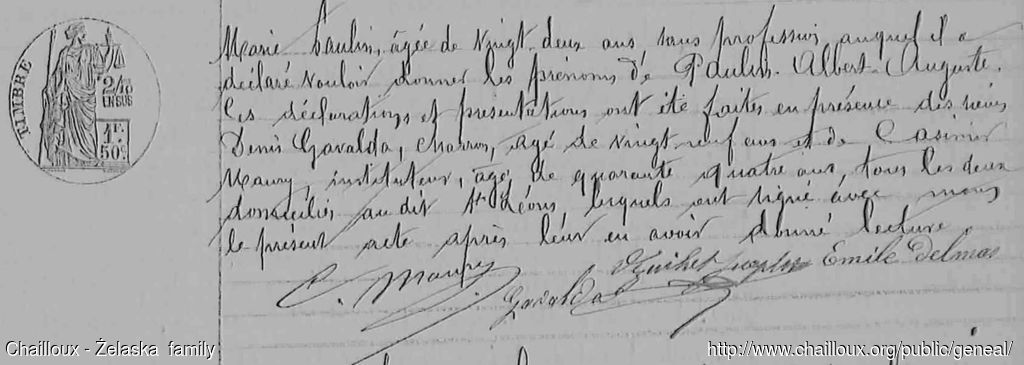 TIMBRE
2/10
EN SUS
1F.
50c.
Marie Paulin, âgée de vingt-deux ans sans profession auquel il a
déclaré vouloir donner les prénoms de Paulin-Albert-Auguste.
Ces déclarations et présentations ont été faites en présence des sieurs
Denis Gavalda, charron, agé de vingt-neuf ans et de Casimir
Maury, instituteur, âgé de quarante quatre ans, tous les deux
domiciliés au dit St Léons, lesquels ont signé avec nous
le présent acte après leur en avoir donné lecture.
C. Maury
Emile Delmas
Gavalda
Chailloux - Żelaska family
http://www.chailloux.org/public/geneal/